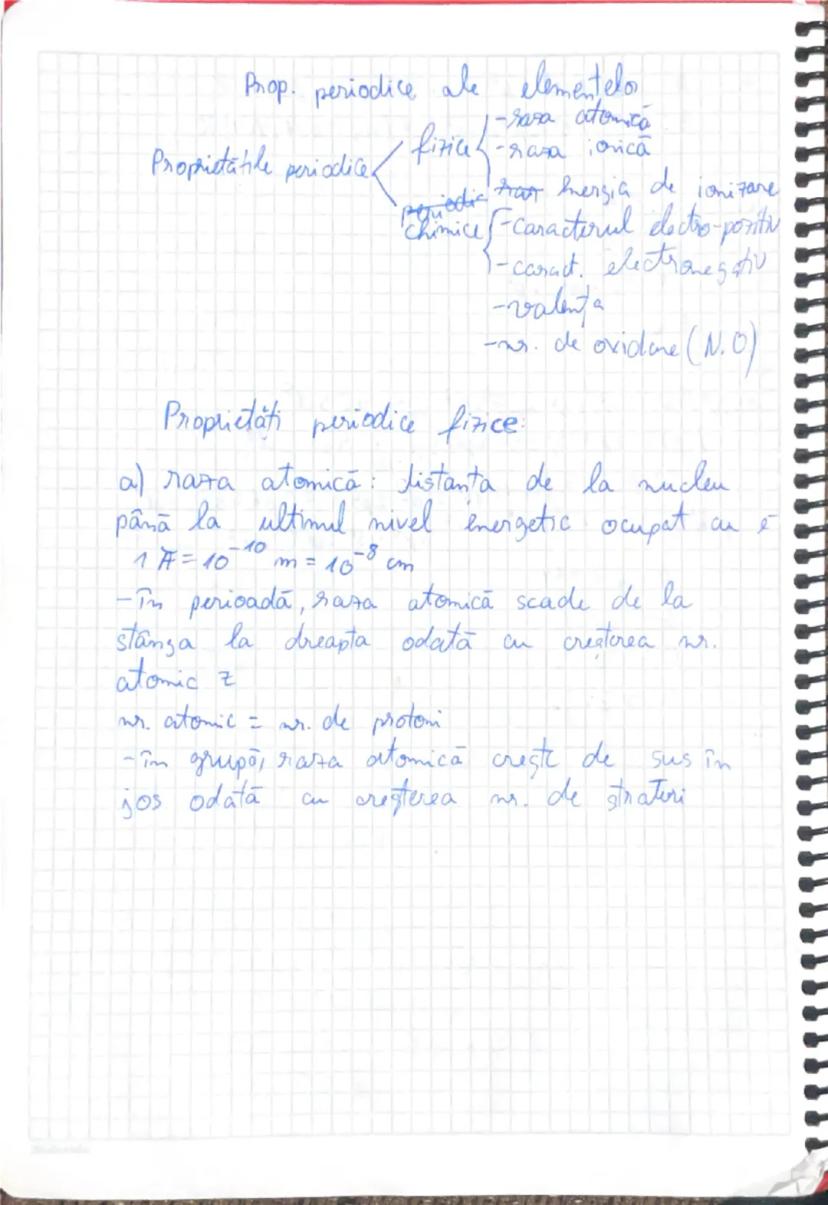 Prop. periodice ale elementelor
-raza atomică
Proprietățile periodice fizice -raza ionică
Energia de ionizare
chimice -caracterul electro-pozitiv
-caract. electronegativ
-valența
-nr. de oxidare (N.O)
Proprietăți periodice fizice:
a) raza atomică: distanța de la nucleu
până la ultimul nivel energetic ocupat cu e⁻
1 Å = 10⁻¹⁰ m = 10⁻⁸ cm
-în perioadă, raza atomică scade de la
stânga la dreapta odată cu creșterea nr.
atomic Z
nr. atomic = nr. de protoni
-în grupă, raza atomică crește de sus în
jos odată cu creșterea nr. de straturi